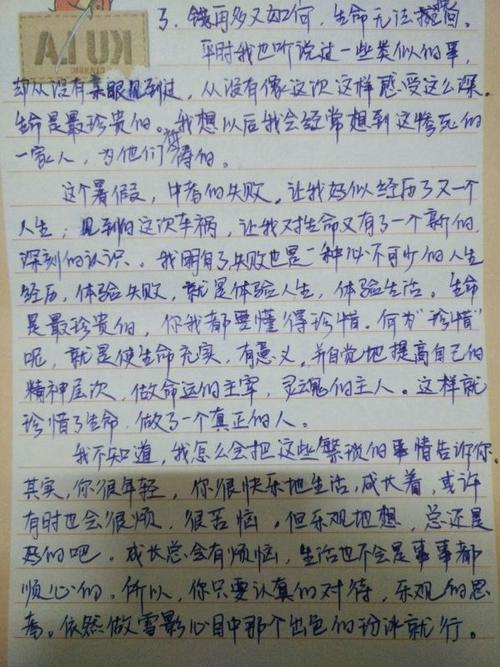 KULA
了，钱再多又如何，生命无法挽回。
平时我也听说过一些类似的事，
却从没有亲眼见到过，从没有像这次这样感受这么深。
生命是最珍贵的。我想以后我会经常想到这惨死的
一家人，为他们 得的。
这个暑假，中考的失败，让我好似经历了又一个
人生；见到的这次车祸，让我对生命又有了一个新的，
深刻的认识。我明白了失败也是一种必不可少的人生
经历，体验失败，就是体验人生，体验生活。生命
是最珍贵的，你我都要懂得珍惜。何为“珍惜”
呢，就是使生命充实，有意义，并自觉地提高自己的
精神层次，做命运的主宰，灵魂的主人。这样就
珍惜了生命，做了一个真正的人。
我不知道，我怎么会把这些繁琐的事情告诉你，
其实，你很年轻，你很快乐地生活，成长着，或许
有时也会很烦，很苦恼，但乐观地想，总还是
好的吧。成长总会有烦恼，生活也不会是事事都
顺心的，所以，你只要认真的对待，乐观的思
考。依然做雪影心目中那个出色的 就行。